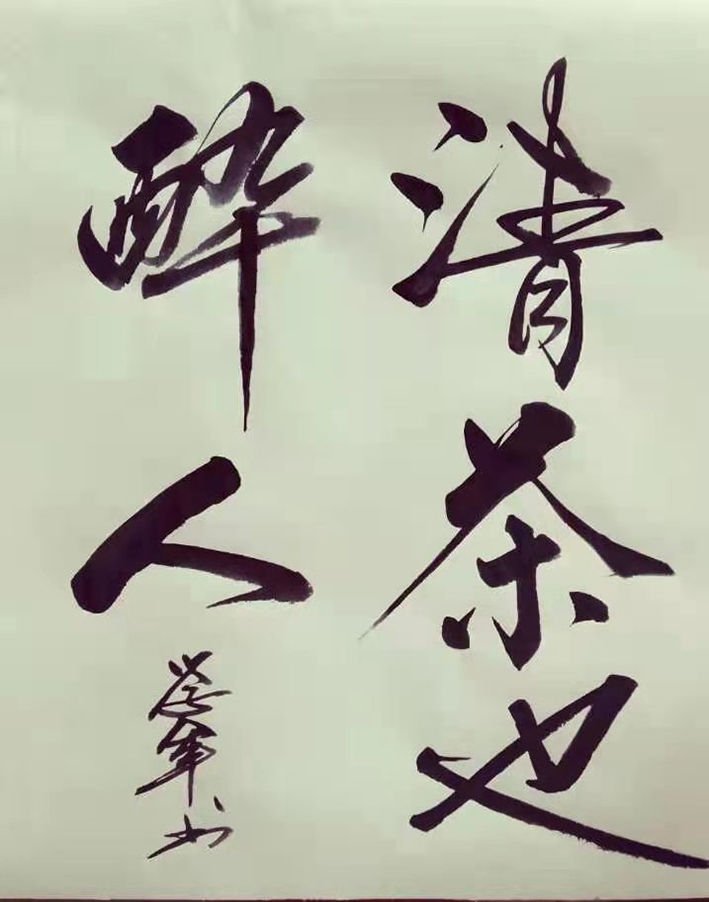 清茶也
醉人